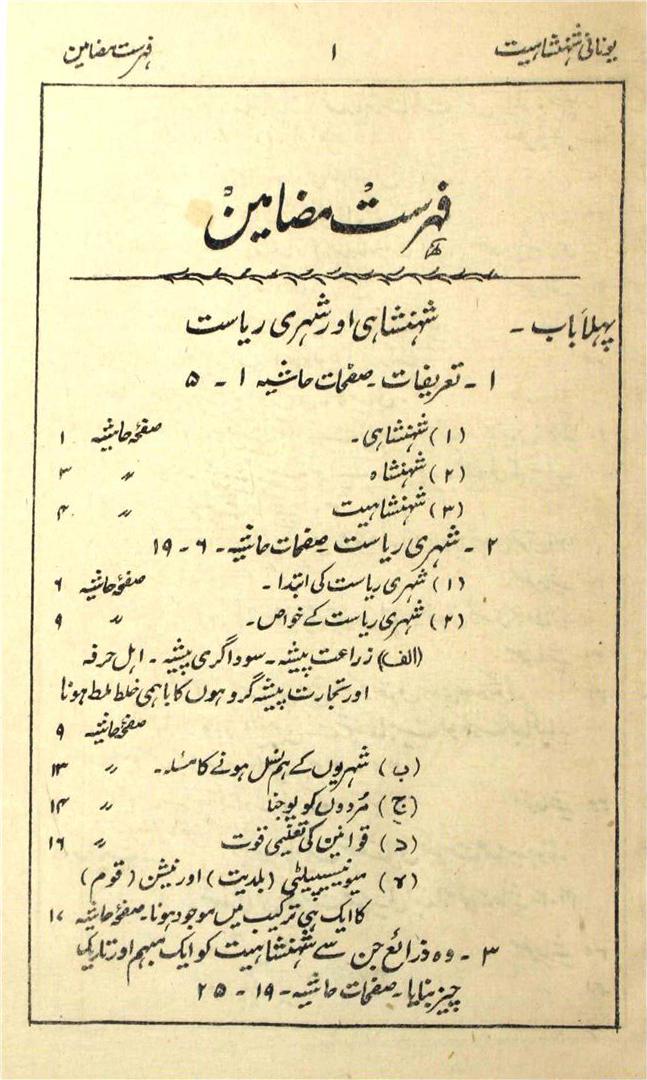 یونانی شہنشاہیت ۱ فہرست مضامین
فہرست مضامین
پہلا باب ۔ شہنشاہی اور شہری ریاست
۱ ۔ تعریفات ۔ صفحات حاشیہ ۱ ۔ ۵
(۱) شہنشاہی ۔ صفحۂ حاشیہ ۱
(۲) شہنشاہ 〃 ۳
(۳) شہنشاہیت 〃 ۴
۲ ۔ شہری ریاست ۔ صفحات حاشیہ ۔ ۶ ۔ ۱۹
(۱) شہری ریاست کی ابتدا ۔ صفحۂ حاشیہ ۶
(۲) شہری ریاست کے خواص ۔ 〃 ۹
(الف) زراعت پیشہ ۔ سوداگری پیشہ ۔ اہل حرفہ
اور تجارت پیشہ گروہوں کا باہمی خلط ملط ہونا
صفحۂ حاشیہ ۹
(ب) شہریوں کے ہم نسل ہونے کا مسئلہ ۔ 〃 ۱۳
(ج) مُردوں کو پوجنا 〃 ۱۴
(د) قوانین کی تعلیمی قوت 〃 ۱۶
(ہ) میونسیپلٹی (بلدیت) اور نیشن (قوم)
کا ایک ہی ترکیب میں موجود ہونا ۔ صفحۂ حاشیہ ۱۷
۳ ۔ وہ ذرائع جن سے شہنشاہیت کو ایک مبہم اور تاریک
چیز بنایا ۔ صفحات حاشیہ ۔ ۱۹ ۔ ۲۵